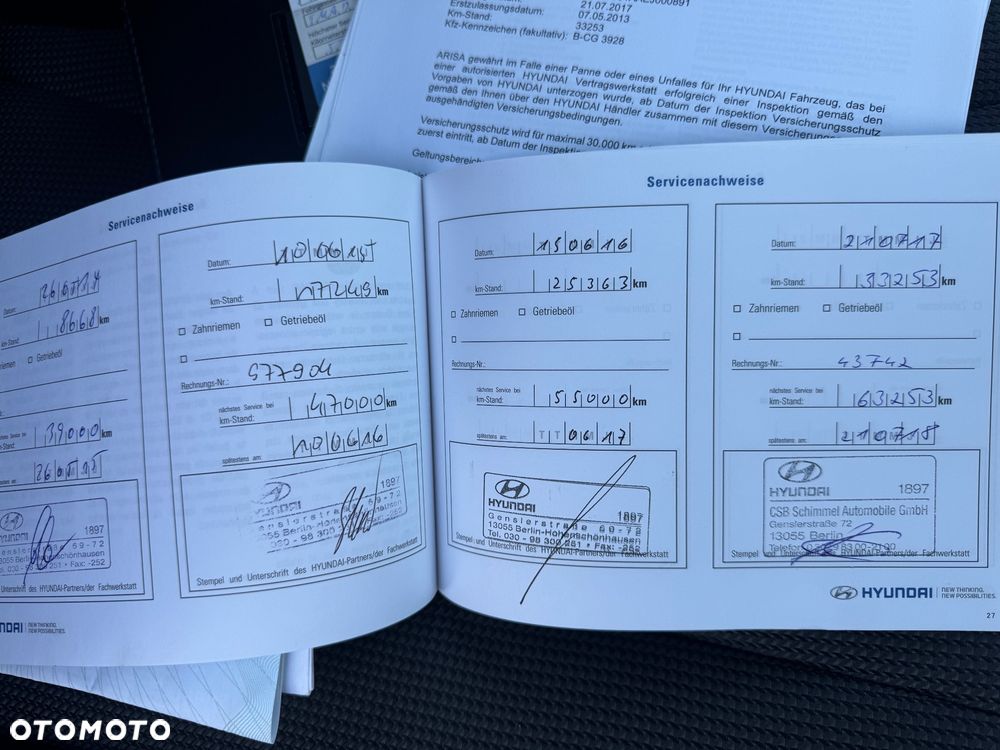 21.07.2017
Erstzulassungsdatum: 07.05.2013
Km-Stand: 33253
Kfz-Kennzeichen (fakultativ): B-CG 3928
ARISA gewährt im Falle einer Panne oder eines Unfalles für Ihr HYUNDAI Fahrzeug, das bei
einer autorisierten HYUNDAI Vertragswerkstatt erfolgreich einer Inspektion gemäß den
Vorgaben von HYUNDAI unterzogen wurde, ab Datum der Inspektion Versicherungsschutz
gemäß den Ihnen über den HYUNDAI Händler zusammen mit diesem
ausgehändigten Versicherungsbedingungen.
Versicherungsschutz wird für maximal 30.000 km
zuerst eintritt, ab Datum der
Servicenachweise
Datum:
km-Stand: 8668 km
Getriebeöl
km
39000 km
1897
HYUNDAI-Partners/der Fachwerkstatt
Datum: 100615
km-Stand: 17249 km
Zahnriemen Getriebeöl
Rechnungs-Nr.: 577904
nächstes Service bei
km-Stand: 47000 km
spätestens am: 100616
1897
Genslerstraße 69-72
13055 Berlin-Hohenschönhausen
Stempel und Unterschrift des HYUNDAI-Partners/der Fachwerkstatt
Servicenachweise
Datum: 150616
km-Stand: 25363 km
Zahnriemen Getriebeöl
Rechnungs-Nr.:
nächstes Service bei
km-Stand: 55000 km
spätestens am: TT0617
HYUNDAI 1897
Genslerstraße 69-72
13055 Berlin-Hohenschönhausen
Tel. 030 - 98 300 251 • Fax: -252
Stempel und Unterschrift des HYUNDAI-Partners/der Fachwerkstatt
Datum: 210717
km-Stand: 33253 km
Zahnriemen Getriebeöl
Rechnungs-Nr.: 43742
nächstes Service bei
km-Stand: 63253 km
spätestens am: 210718
HYUNDAI 1897
CSB Schimmel Automobile GmbH
Genslerstraße 72
13055 Berlin
Stempel und Unterschrift des HYUNDAI-Partners/der Fachwerkstatt
HYUNDAI NEW THINKING. NEW POSSIBILITIES.
27
NEW THINKING. NEW POSSIBILITIES.
OTOMOTO